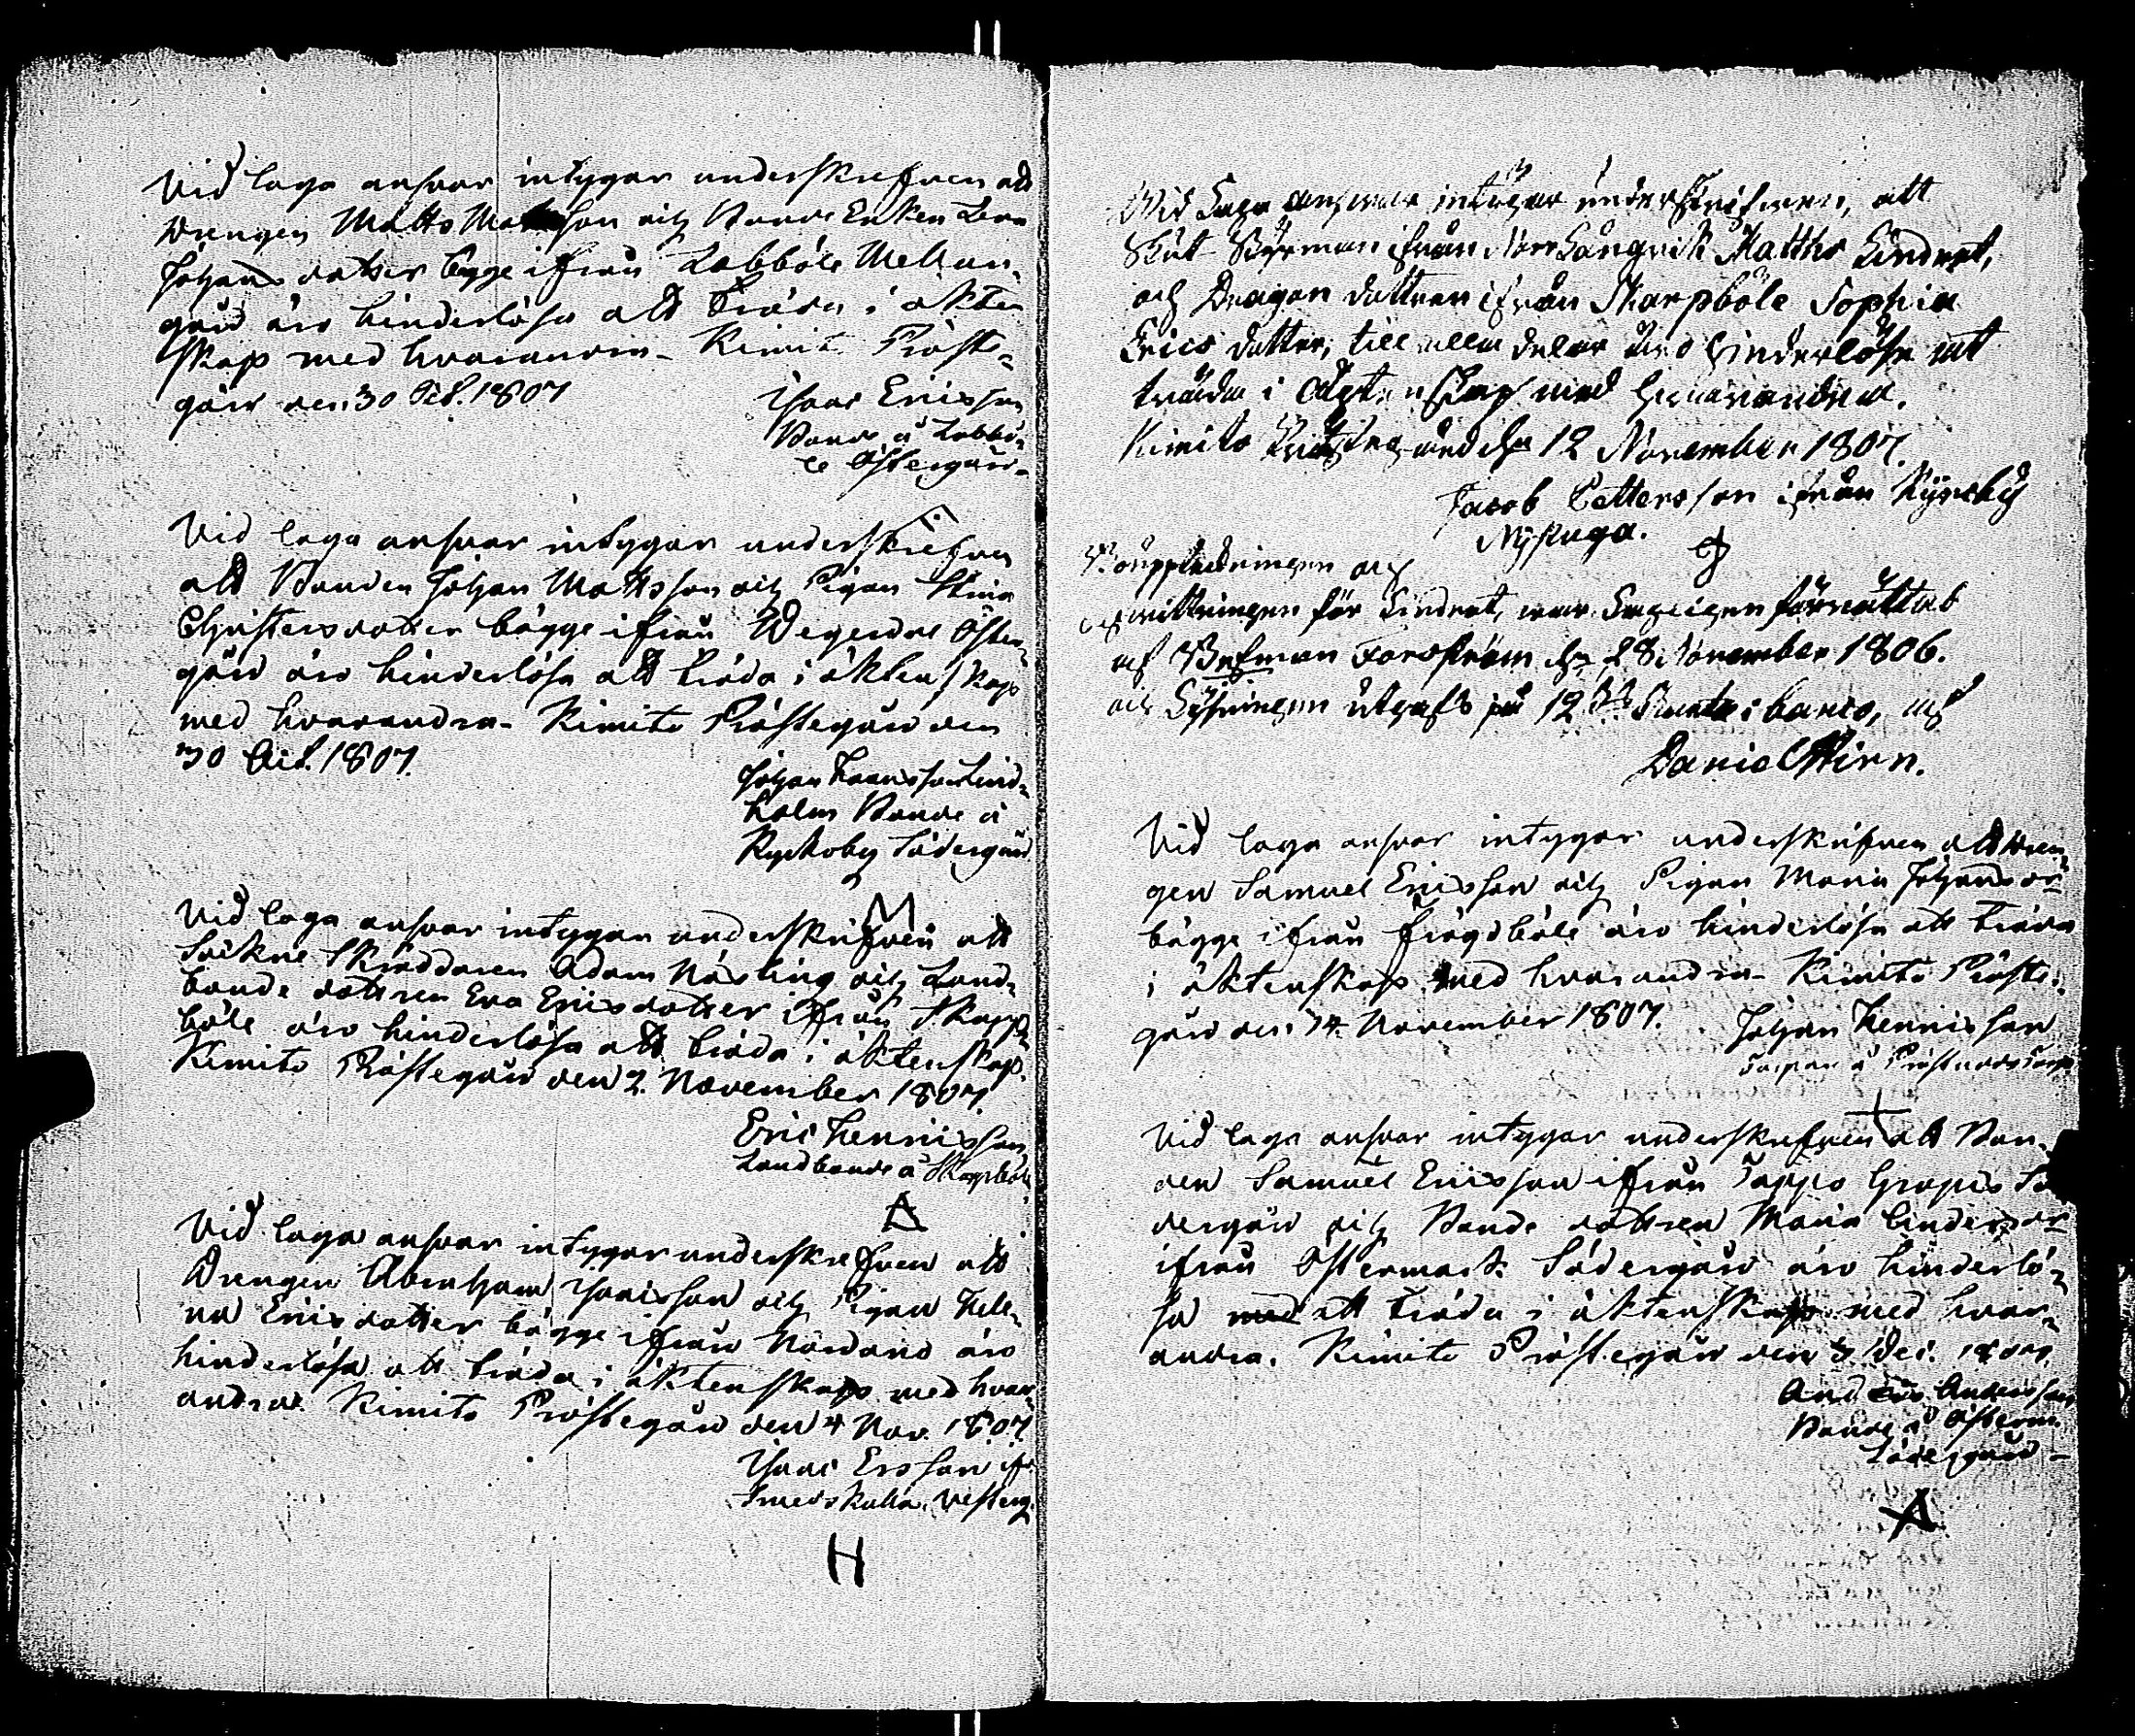 Vid laga answar intygar underskrefven att
Drengen Matts Matsson och Bonde Enkan Lena
Johans dotter bägge ifrån Labböle Mellan-
gård äro hinderlösa att träda i äkten
skap med hvarandra. Kimito Präste-
gård den 30 Oct. 1807
Isaac Ericsson
Bonde å Labbö-
le Östergård.
Vid laga answar intygar underskrefven
att Bonden Johan Mattsson och Pigan Stina
Christersdotter bägge ifrån Wegerdal Öster-
gård äro hinderlösa att träda i äktenskap
med hvarandra. Kimito Prästegård den
30 Oct. 1807.
Johan Lind-
holm Bonde å
Ryskoby Södergård
Vid laga answar intygar underskrifven att
Sockne Skräddaren Adam Näsling och Land-
bonde dottren Eva Ericsdotter ifrån Skarp-
böle äro hinderlösa att träda i äktenskap.
Kimito Prästegård den 2. November 1807.
Eric Henricsson
Landbonde å Skarpböle
Vid laga answar intygar underskrefven att
Drengen Abraham Isacsson och Pigan Hele-
na Ericsdotter bägge ifrån Nordanå äro
hinderlösa att träda i äktenskap med hvar-
andra. Kimito Prästegård den 4 Nov. 1807
Isaac Ersson ifr.
Smedskulla Vesterg.
H
Wid Laga answar intygar underskrifwen, att
Skut Styrman ifrån Norr Långvik Matths Lindrot,
och Dragon dottren ifrån Skarpböle Sophia
Erics dotter, till alla delar äro hinderlöse att
träda i ächtenskap med hwarandra.
Kimito Prästegård den 12 November 1807.
Jacob Pettersson ifrån Rysskby
Nystuga.
Bouppteckningen och
afwittringen för Lindrot, war Lageligen förrättad
af Befman Forsström den 28 November 1806.
och Lysningen utgafs på 12 Runst: banco, af
Daniel Stirn.
Vid laga answar intygar underskrifven att Dren-
gen Samuel Ericsson och Pigan Maria Johansdr
bägge ifrån Frögdböle äro hinderlösa att träda
i äktenskap med hvarandra. Kimito Präste-
gård den 14. November 1807.
Johan Henricsson
Torpare å Prästnäs Torp
Vid laga answar intygar underskrefven att Bon-
den Samuel Ericsson ifrån Tappo Gropis Sö-
dergård och Bonde dottren Maria Lindersdr
ifrån Östermark Södergård äro hinderlö-
sa med att träda i äktenskap med hvar-
andra. Kimito Prästegård den 3 Dec. 1807.
Anders Andersson
Bonde å Österm.
Södergård
A